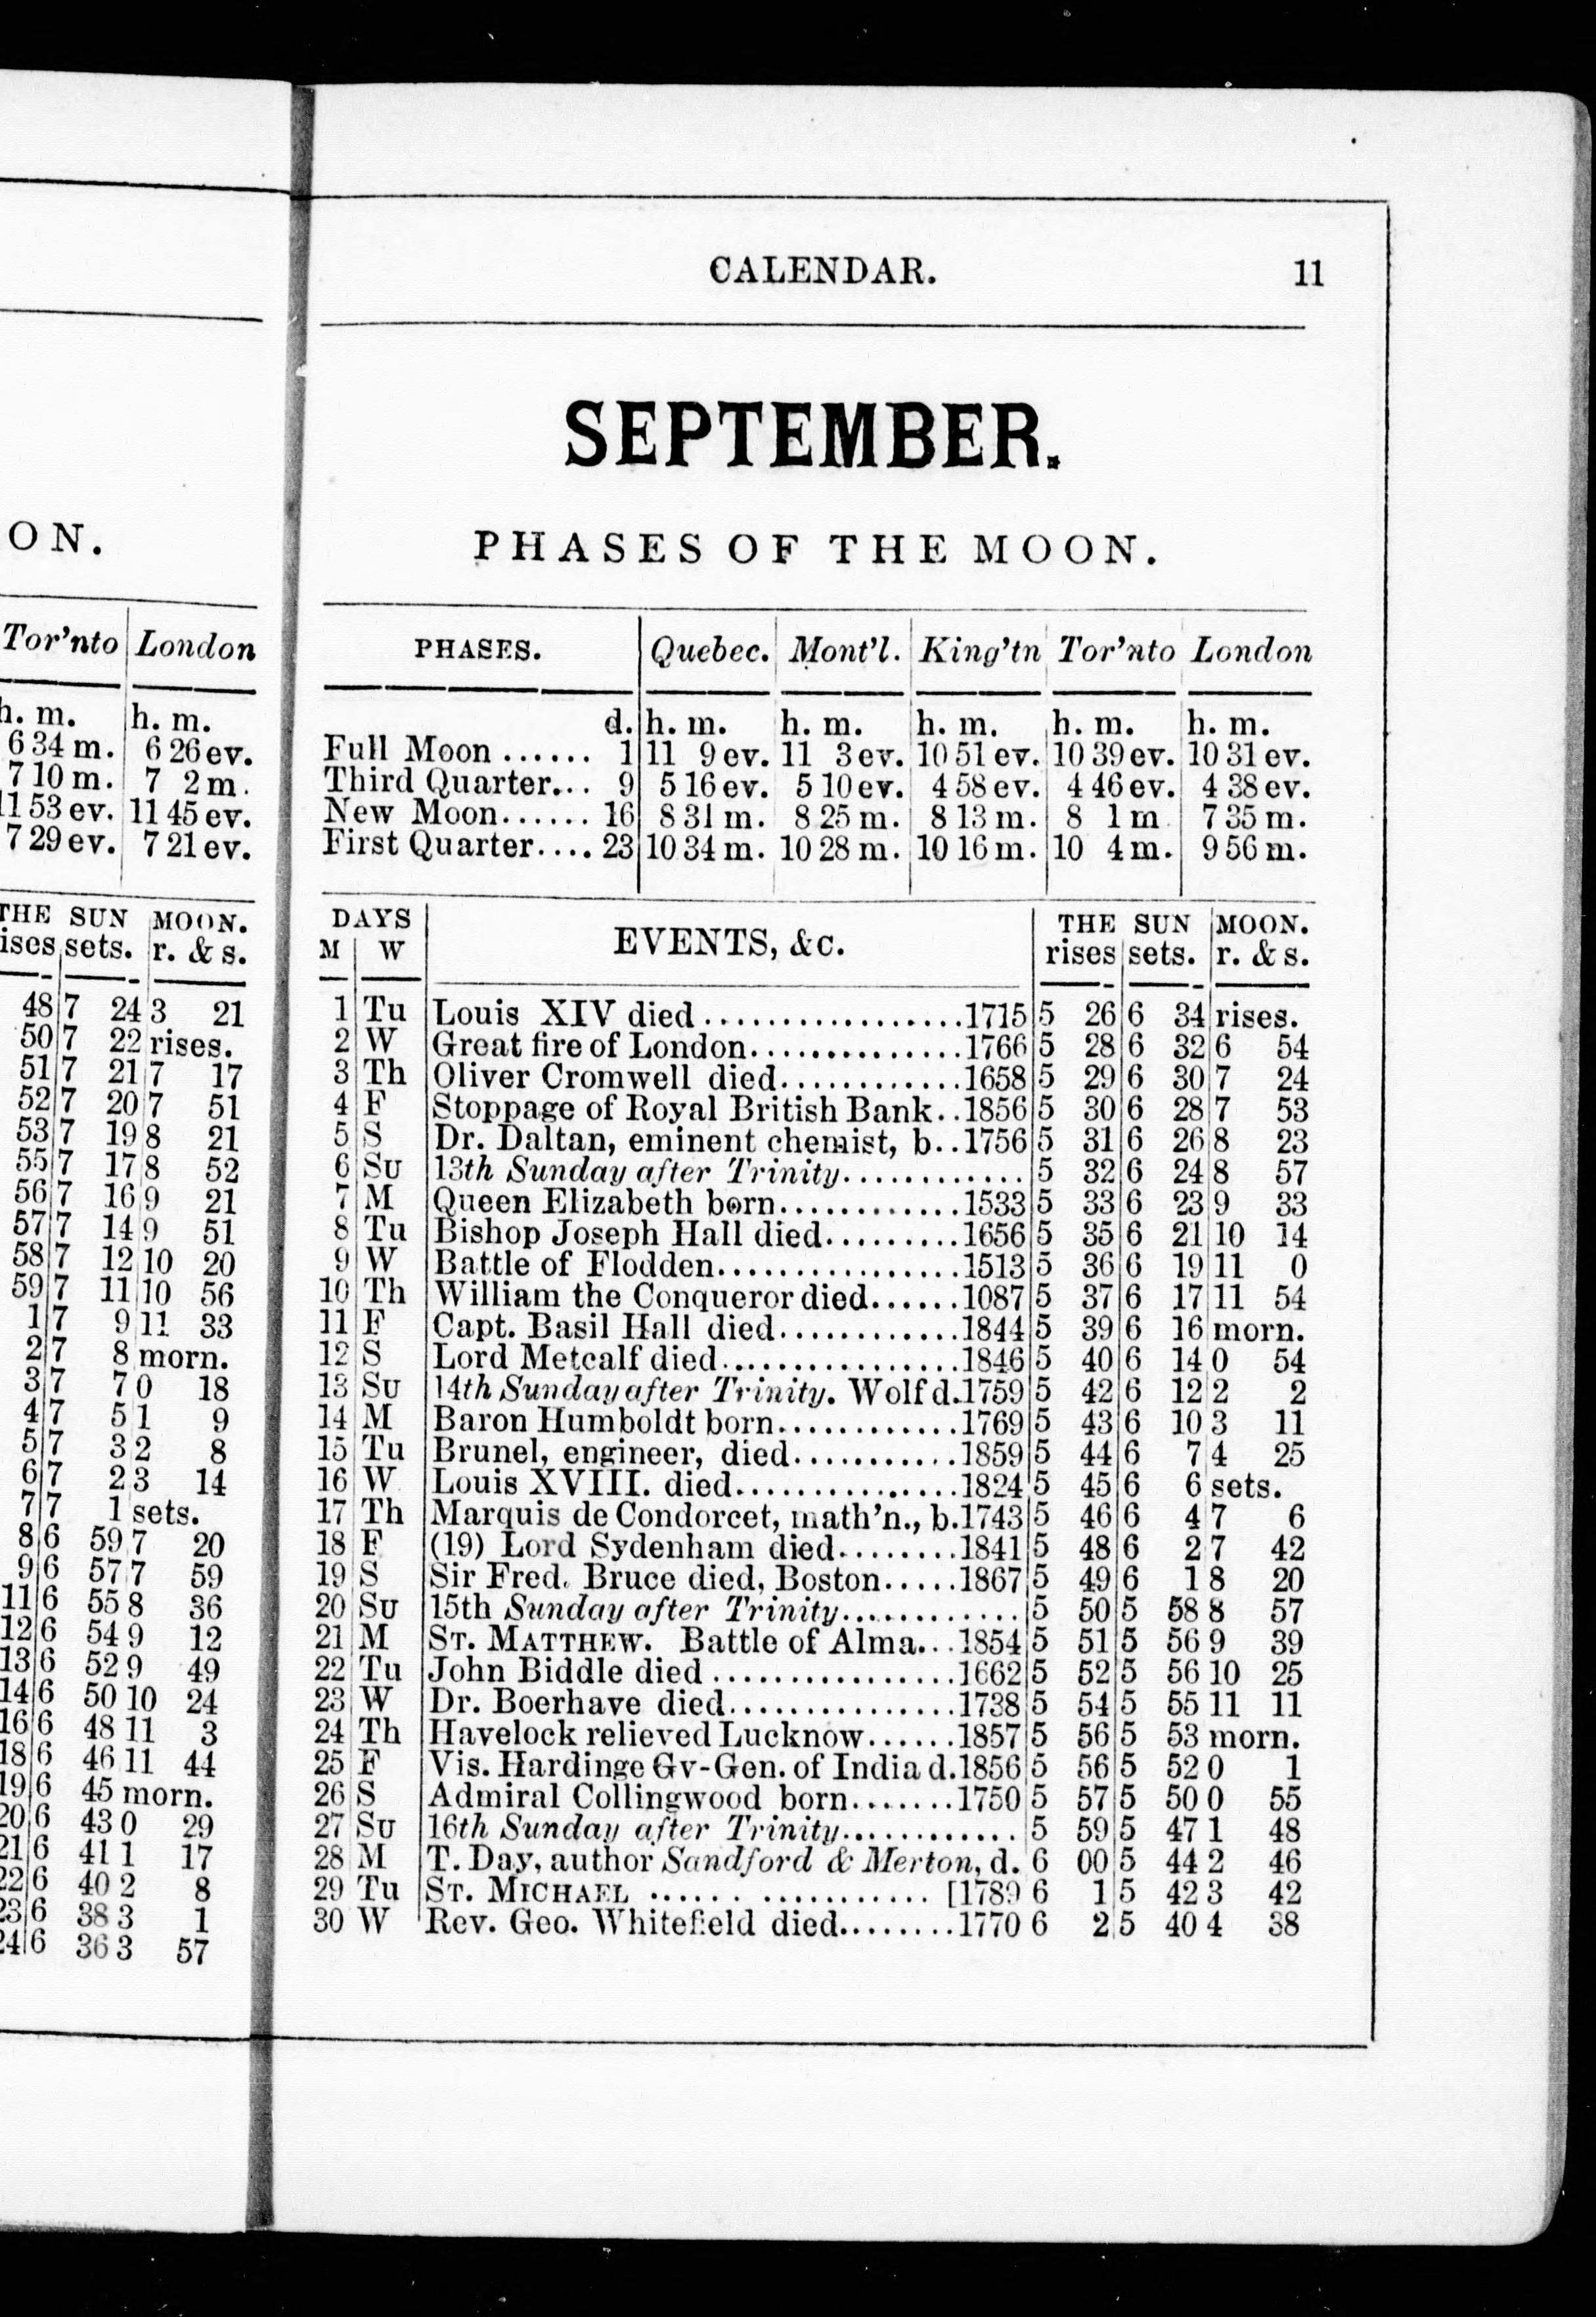 ON.
Tor'nto London
h. m. h. m.
6 34 m. 6 26 ev.
7 10 m. 7 2 m.
11 53 ev. 11 45 ev.
7 29 ev. 7 21 ev.
THE SUN MOON.
ises sets. r. & s.
48 7 24 3 21
50 7 22 rises.
51 7 21 7 17
52 7 20 7 51
53 7 19 8 21
55 7 17 8 52
56 7 16 9 21
57 7 14 9 51
58 7 12 10 20
59 7 11 10 56
1 7 9 11 33
2 7 8 morn.
3 7 7 0 18
4 7 5 1 9
5 7 3 2 8
6 7 2 3 14
7 7 1 sets.
8 6 59 7 20
9 6 57 7 59
11 6 55 8 36
12 6 54 9 12
13 6 52 9 49
14 6 50 10 24
16 6 48 11 3
18 6 46 11 44
19 6 45 morn.
20 6 43 0 29
21 6 41 1 17
22 6 40 2 8
23 6 38 3 1
24 6 36 3 57
CALENDAR. 11
SEPTEMBER.
PHASES OF THE MOON.
PHASES. Quebec. Mont'l. King'tn Tor'nto London
d. h. m. h. m. h. m. h. m. h. m.
Full Moon ...... 1 11 9 ev. 11 3 ev. 10 51 ev. 10 39 ev. 10 31 ev.
Third Quarter... 9 5 16 ev. 5 10 ev. 4 58 ev. 4 46 ev. 4 38 ev.
New Moon...... 16 8 31 m. 8 25 m. 8 13 m. 8 1 m 7 35 m.
First Quarter.... 23 10 34 m. 10 28 m. 10 16 m. 10 4 m. 9 56 m.
DAYS EVENTS, &c. THE SUN MOON.
M W rises sets. r. & s.
1 Tu Louis XIV died ..................1715 5 26 6 34 rises.
2 W Great fire of London...............1766 5 28 6 32 6 54
3 Th Oliver Cromwell died.............1658 5 29 6 30 7 24
4 F Stoppage of Royal British Bank..1856 5 30 6 28 7 53
5 S Dr. Daltan, eminent chemist, b..1756 5 31 6 26 8 23
6 Su 13th Sunday after Trinity............. 5 32 6 24 8 57
7 M Queen Elizabeth born.............1533 5 33 6 23 9 33
8 Tu Bishop Joseph Hall died.........1656 5 35 6 21 10 14
9 W Battle of Flodden.................1513 5 36 6 19 11 0
10 Th William the Conqueror died......1087 5 37 6 17 11 54
11 F Capt. Basil Hall died.............1844 5 39 6 16 morn.
12 S Lord Metcalf died.................1846 5 40 6 14 0 54
13 Su 14th Sunday after Trinity. Wolf d.1759 5 42 6 12 2 2
14 M Baron Humboldt born.............1769 5 43 6 10 3 11
15 Tu Brunel, engineer, died............1859 5 44 6 7 4 25
16 W Louis XVIII. died................1824 5 45 6 6 sets.
17 Th Marquis de Condorcet, math'n., b.1743 5 46 6 4 7 6
18 F (19) Lord Sydenham died........1841 5 48 6 2 7 42
19 S Sir Fred. Bruce died, Boston.....1867 5 49 6 1 8 20
20 Su 15th Sunday after Trinity............. 5 50 5 58 8 57
21 M ST. MATTHEW. Battle of Alma...1854 5 51 5 56 9 39
22 Tu John Biddle died .................1662 5 52 5 56 10 25
23 W Dr. Boerhave died................1738 5 54 5 55 11 11
24 Th Havelock relieved Lucknow......1857 5 56 5 53 morn.
25 F Vis. Hardinge Gv-Gen. of India d.1856 5 56 5 52 0 1
26 S Admiral Collingwood born.......1750 5 57 5 50 0 55
27 Su 16th Sunday after Trinity............. 5 59 5 47 1 48
28 M T. Day, author Sandford & Merton, d. 6 00 5 44 2 46
29 Tu ST. MICHAEL ...... ............ [1789 6 1 5 42 3 42
30 W Rev. Geo. Whitefield died........1770 6 2 5 40 4 38